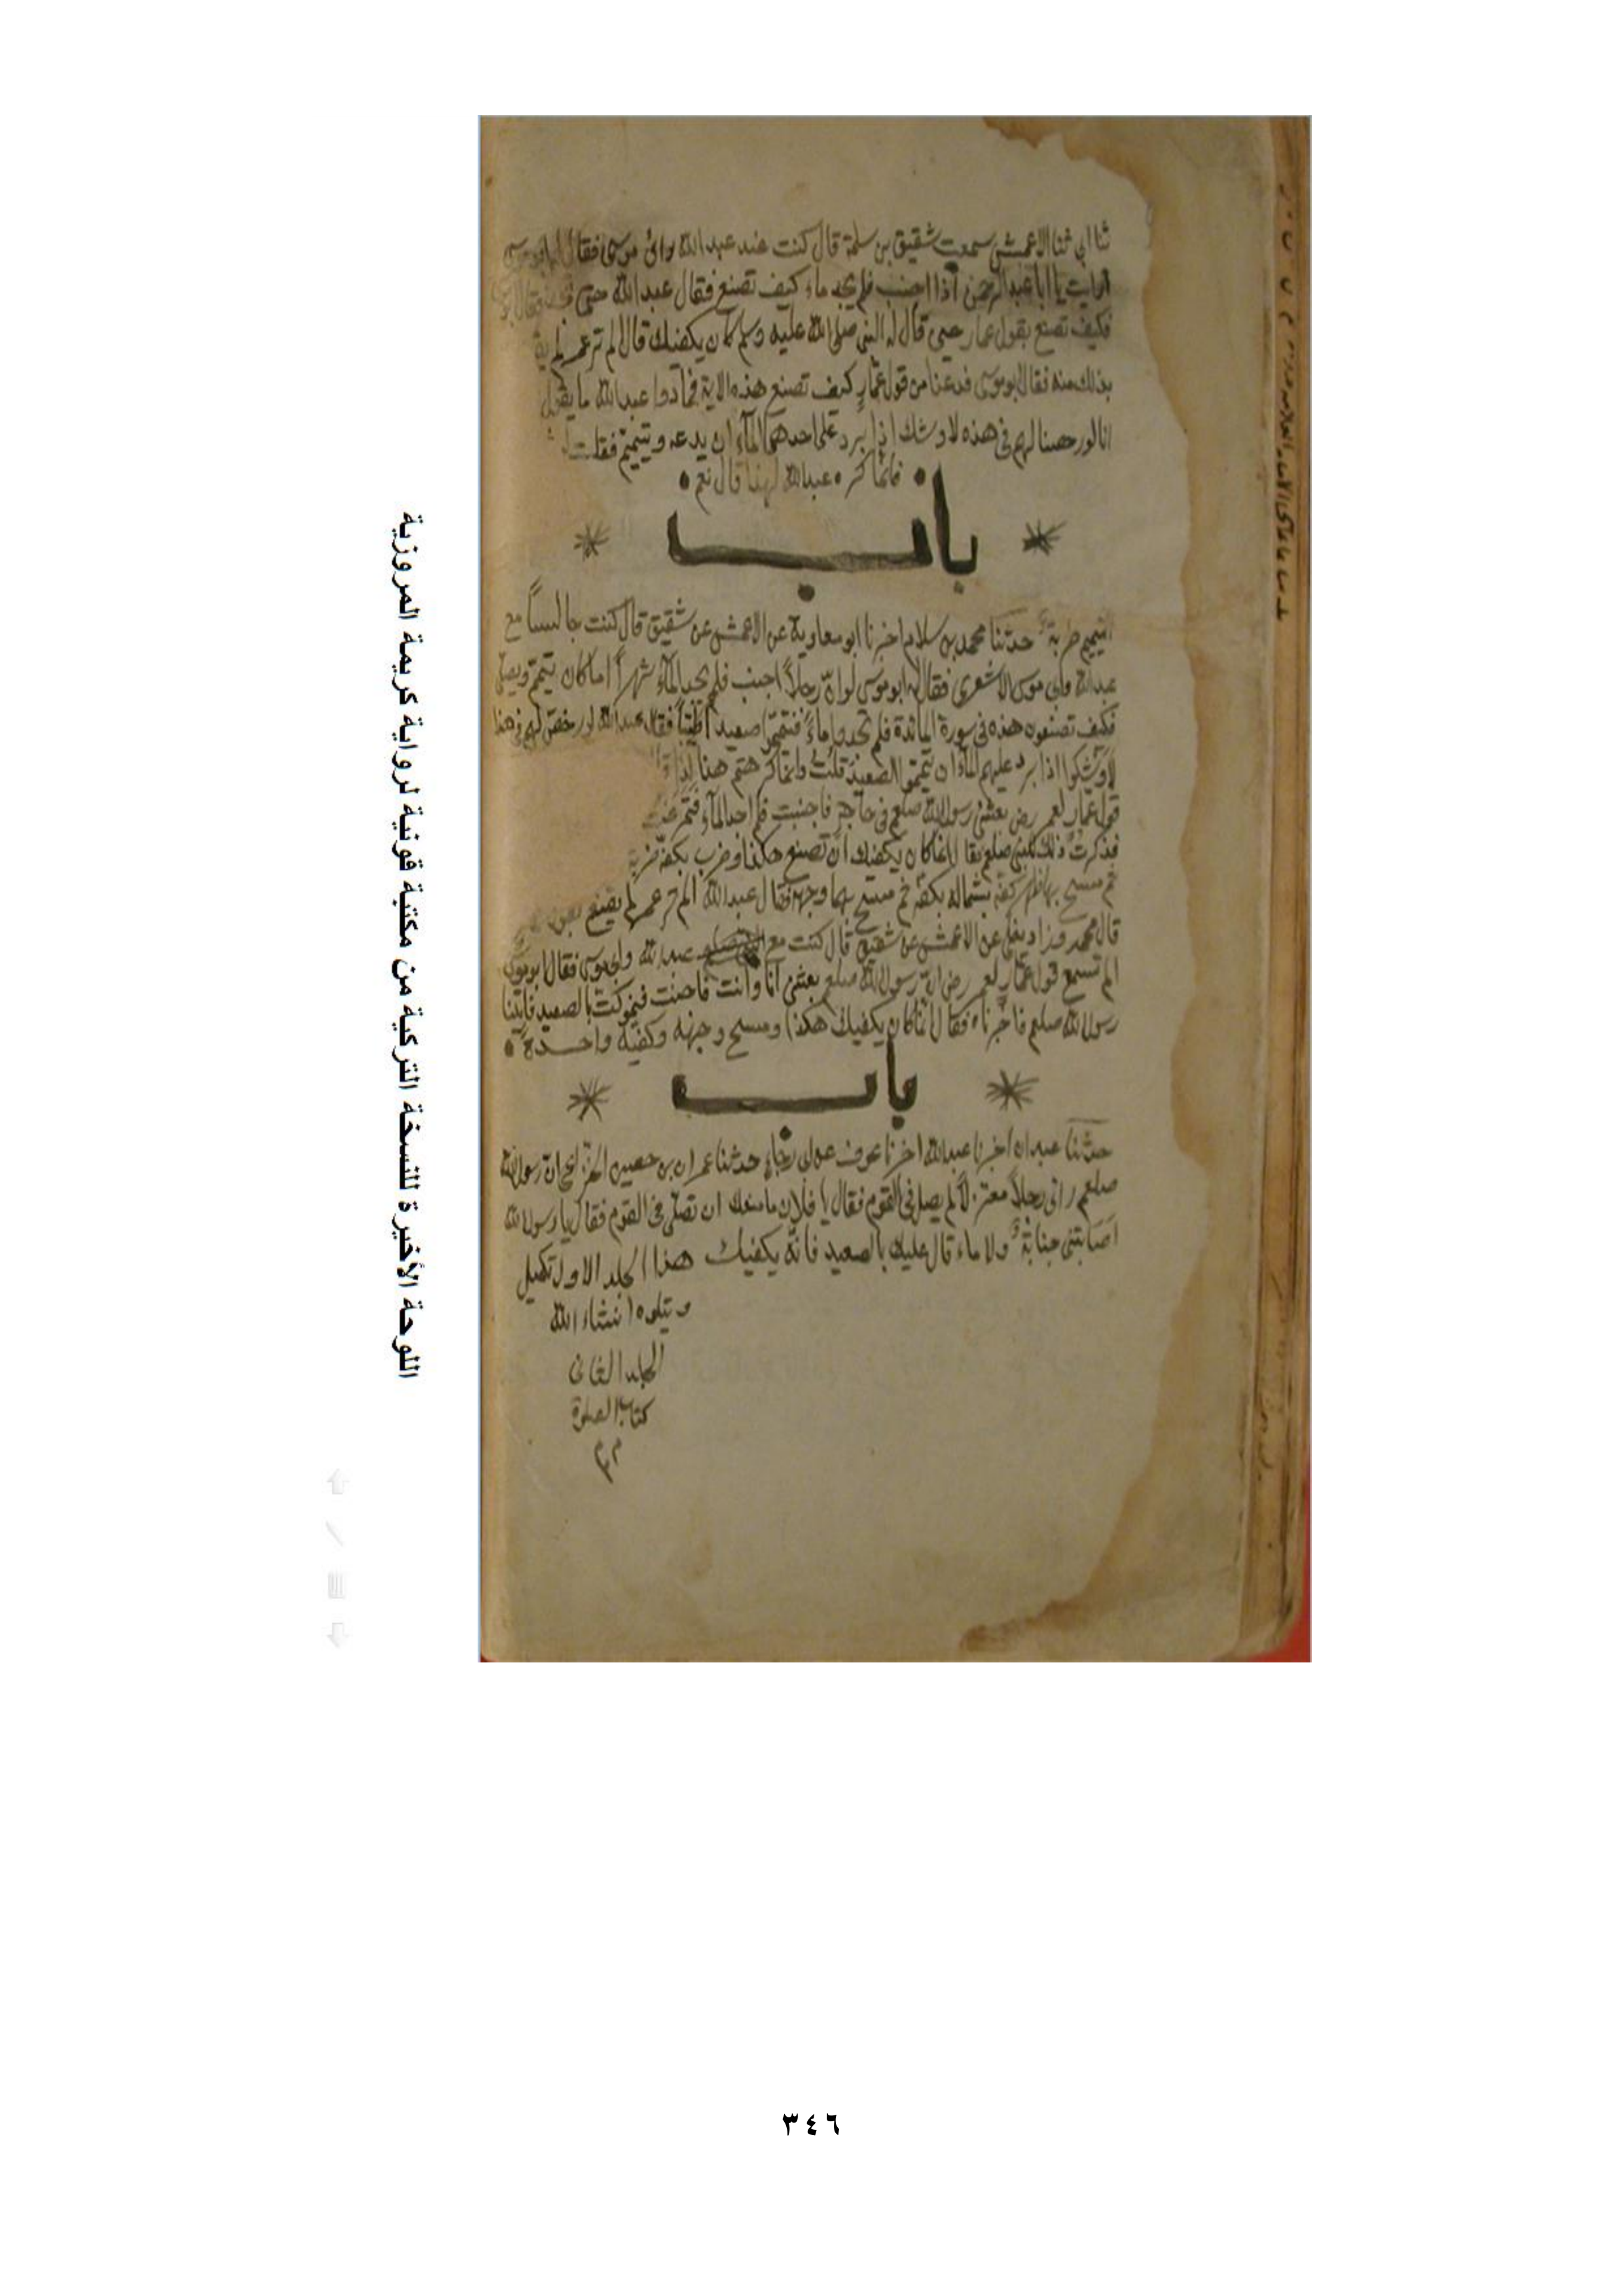 ثنا ابي ثنا الاعمش سمعت شقيق بن سلمة قال كنت عند عبد الله وابى موسى فقال ابو موسى
ارايت يا ابا عبد الرحمن اذا اجنب فلم يجد ماء كيف تصنع فقال عبد الله حتى فقال
فكيف تصنع بقول عمار حين قال له النبى صلى الله عليه وسلم كان يكفيك قال الم تر عمر لم
بذلك منه فقال ابو موسى فدعنا من قول عمار كيف تصنع هذه الاية فما درا عبد الله ما يقول
انا لو رخصنا لهم فى هذه لاوشك اذا برد على احدهم الماء ان يدعه ويتيمم فقلت
فانما كره عبد الله لهذا قال نعم
باب
التيمم ضربة حدثنا محمد بن سلام اخبرنا ابو معاوية عن الاعمش عن شقيق قال كنت جالسا مع
عبد الله وابى موسى الاشعرى فقال له ابو موسى لو ان رجلا اجنب فلم يجد الماء شهرا اما كان يتيمم ويصلى
فكيف تصنعون هذه فى سورة المائدة فلم تجدوا ماء فتيمموا صعيدا طيبا فقال عبد الله لو رخص لهم فى هذا
لاوشكوا اذا برد عليهم الماء ان يتيمموا الصعيد قلت وانما كرهتم هذا لذا
قول عمار لعمر رض بعثنى رسول الله صلعم فى حاجة فاجنبت فلم اجد الماء فتمرغت
فذكرت ذلك للنبى صلعم فقال انما كان يكفيك ان تصنع هكذا وضرب بكفه ضربة
ثم مسح بها ظهر كفه بشماله بكفه ثم مسح بها وجهه فقال عبد الله الم تر عمر لم يقنع بقول
قال محمد وزاد يعلى عن الاعمش عن شقيق قال كنت مع عبد الله وابى موسى فقال ابو موسى
الم تسمع قول عمار لعمر رض ان رسول الله صلعم بعثنى انا وانت فاجنبت فتمعكت بالصعيد فاتينا
رسول الله صلعم فاخبرناه فقال انما كان يكفيك هكذا ومسح وجهه وكفيه واحدة
باب
حدثنا عبدان اخبرنا عبد الله اخبرنا عوف عن ابى رجاء حدثنا عمران بن حصين الخزاعى ان رسول الله
صلعم راى رجلا معتزلا لم يصل فى القوم فقال يا فلان ما منعك ان تصلى فى القوم فقال يا رسول الله
اصابتنى جنابة ولا ماء قال عليك بالصعيد فانه يكفيك هذا الجلد الاول تكميل
ويتلوه انشاء الله
الجلد الثانى
كتاب الصلوة
اللوحة الأخيرة للنسخة التركية من مكتبة قونية لرواية كريمة المروزية
٣٤٦